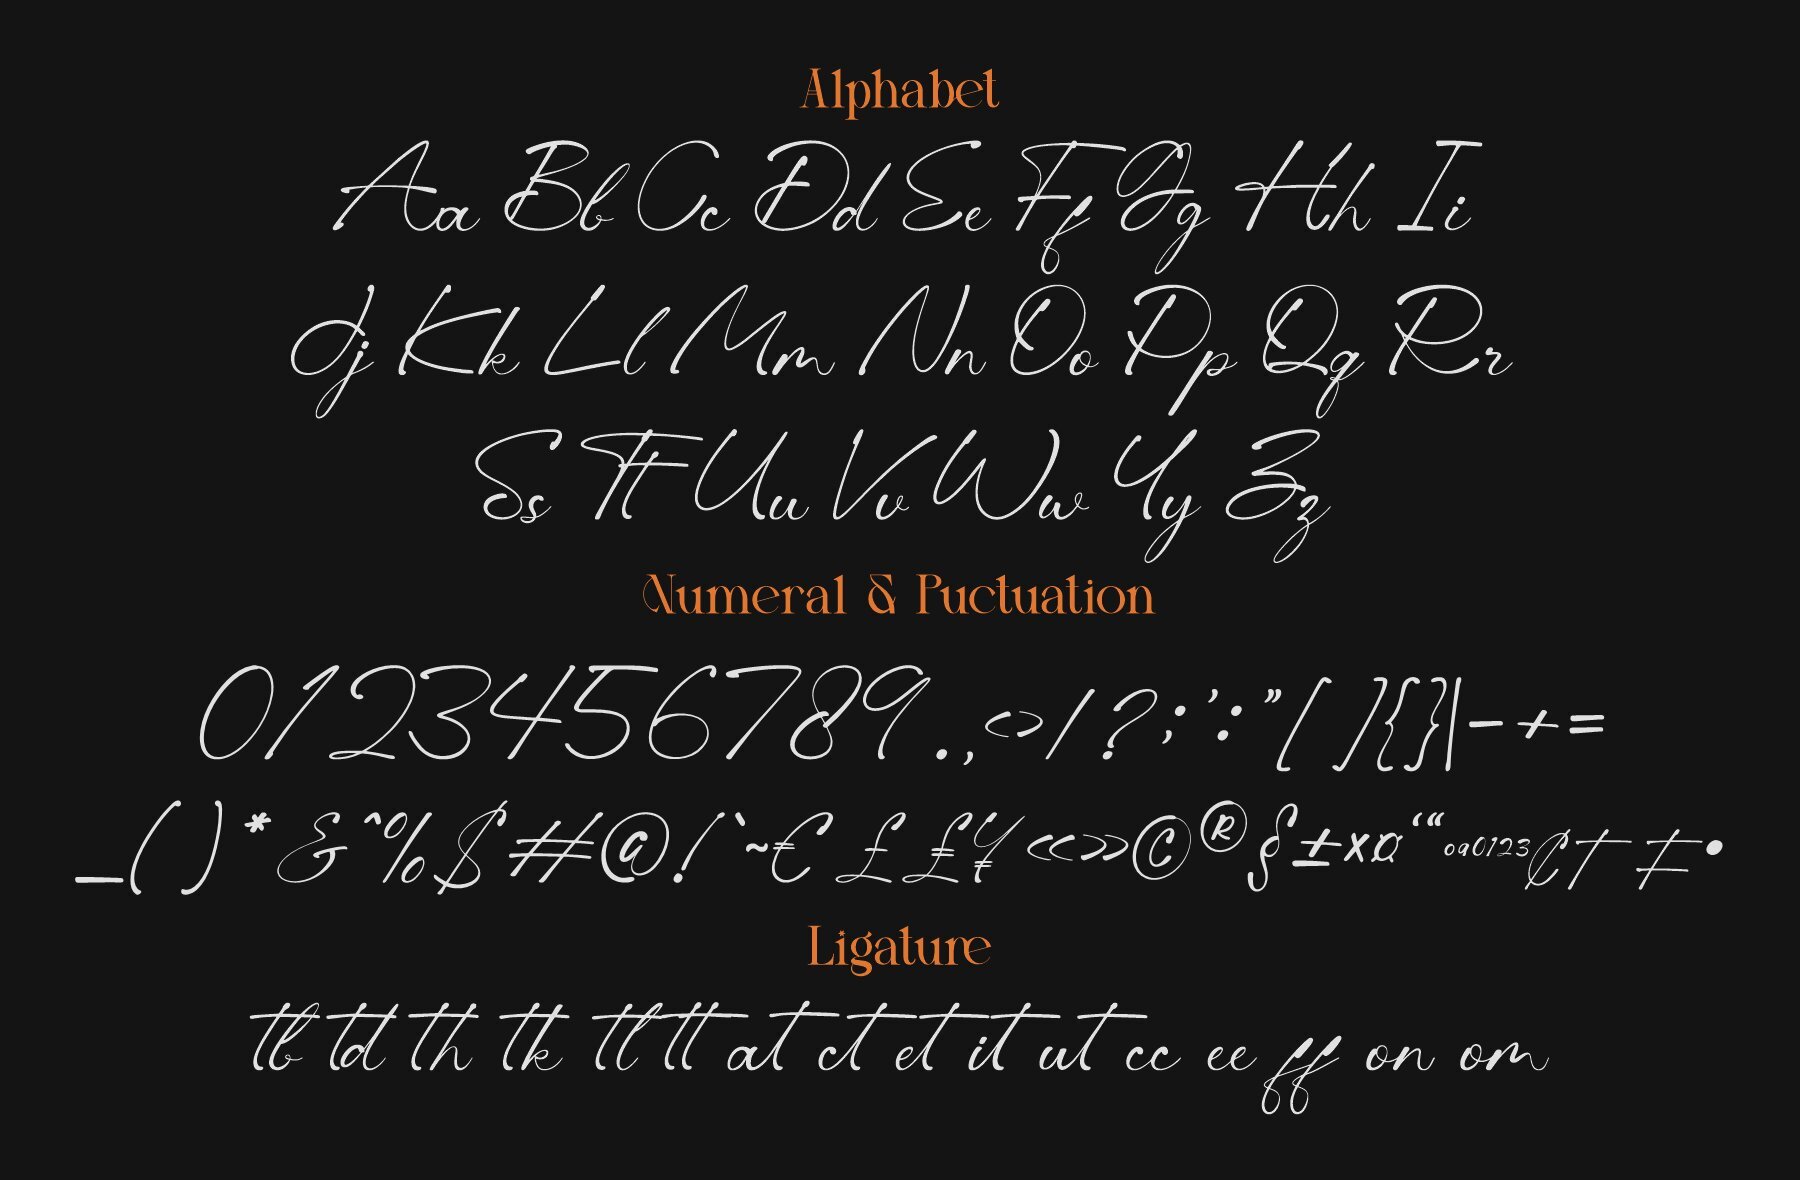 Alphabet
Aa Bb Cc Dd Ee Ff Gg Hh Ii
Jj Kk Ll Mm Nn Oo Pp Qq Rr
Ss Tt Uu Vv Ww Yy Zz
Numeral & Puctuation
0123456789.,<>/?;':"[]{}|-+=
_()*&^%$#@!`~€££¥«»©®§±×¤‘“ºª0123¢†‡•
Ligature
tb td th tk tl tt at ct et it ut cc ee ff on om